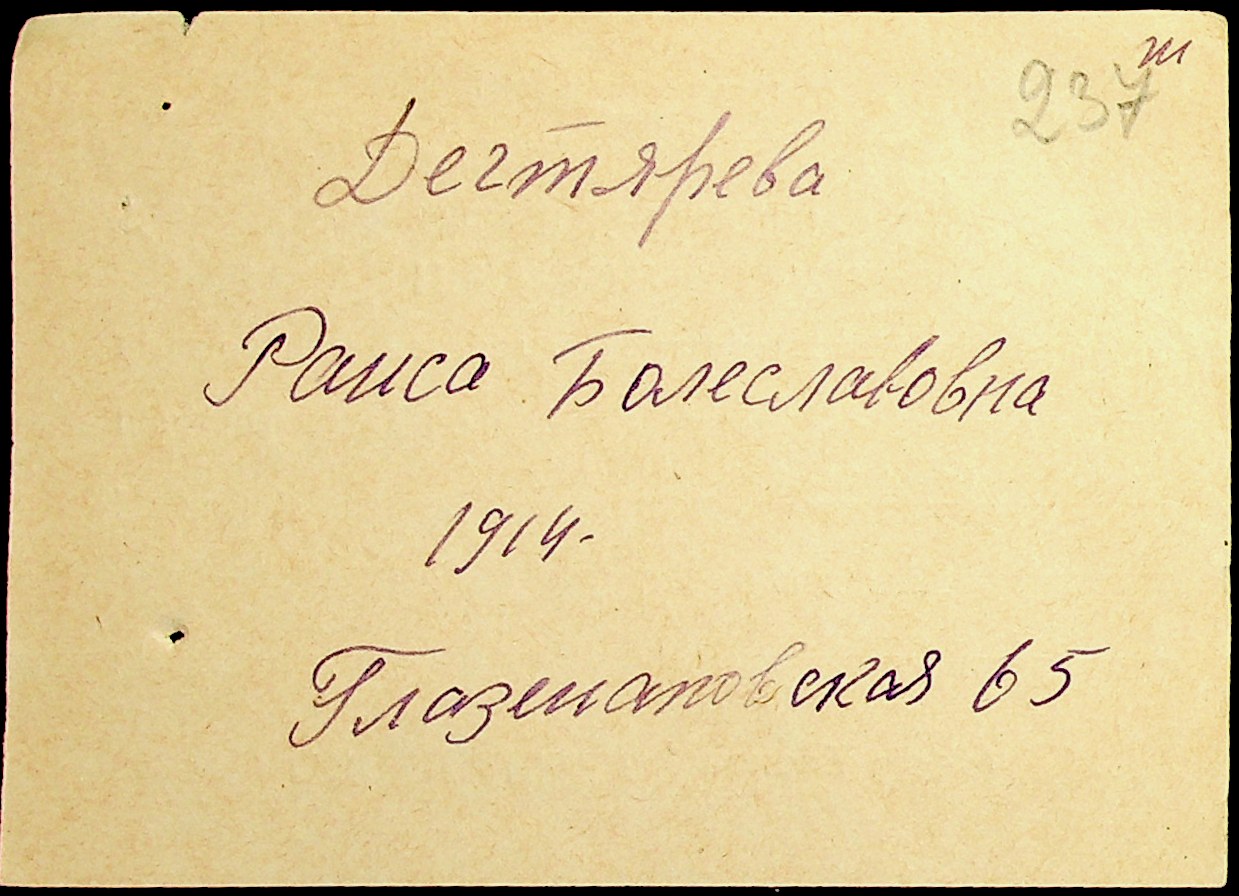 237
Дегтярева
Раиса Болеславовна
1914-
Глазенаповская 65